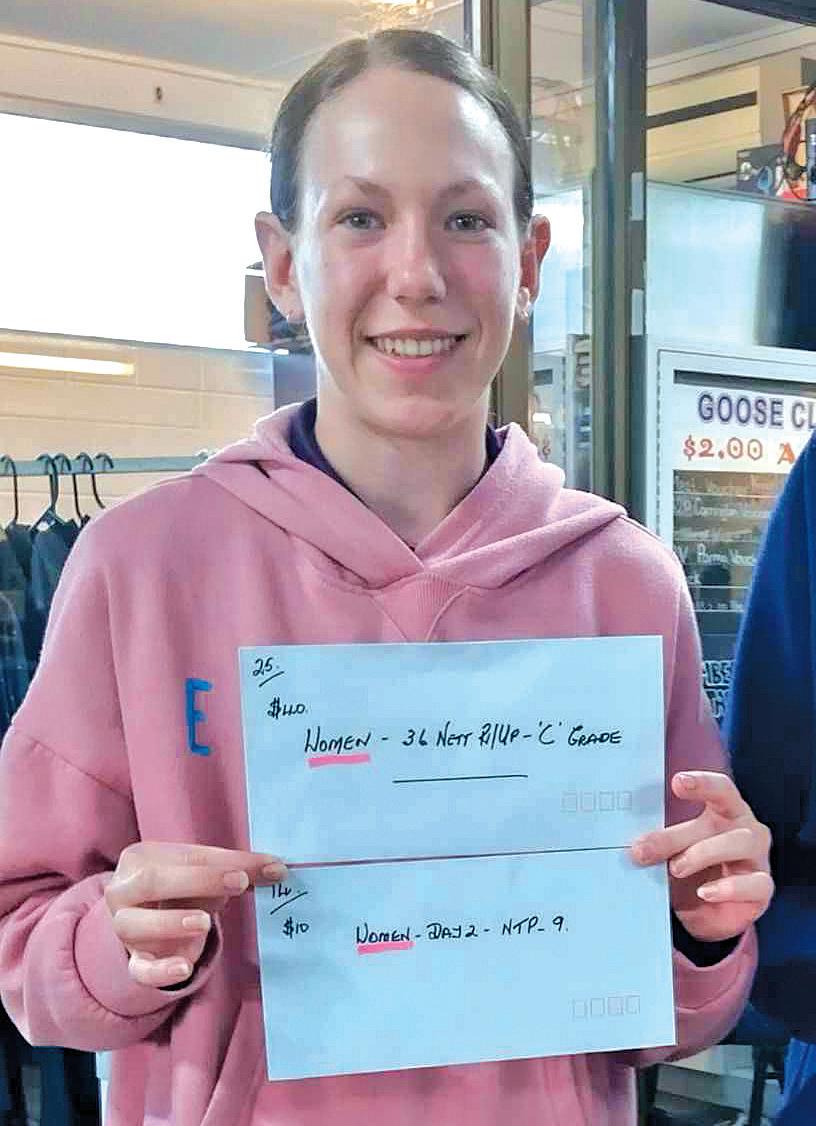 GOOSE CL
$2.00 A
E
25.
$40.
WOMEN - 36 NETT R/UP - 'C' GRADE
14.
$10
WOMEN - DAY 2 - NTP - 9.